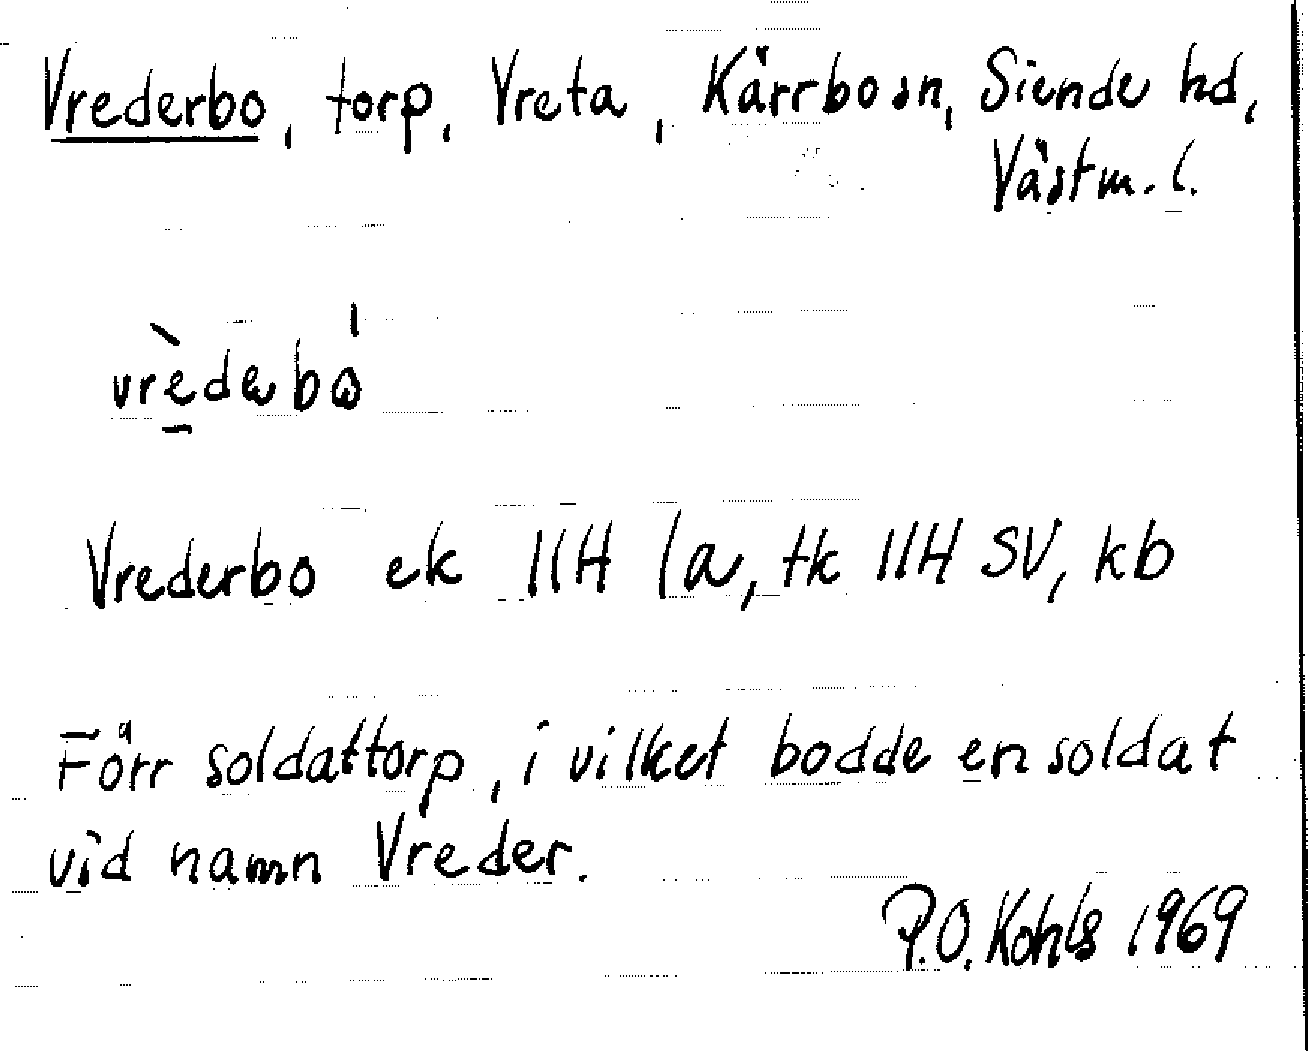 Vrederbo, torp, Vreta, Kärrbo sn, Siende hd,
Västm. l.
vrèdebo
Vrederbo ek 11H 1a, tk 11H SV, kb
Förr soldattorp, i vilket bodde en soldat
vid namn Vreder.
P.O. Kohls 1969